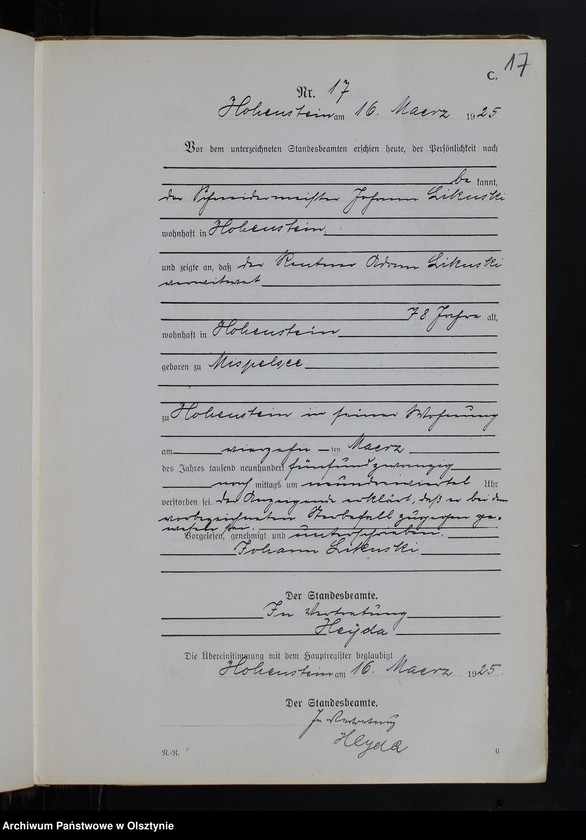 C. 17
Nr. 17
Hohenstein am 16. Maerz 1925
Vor dem unterzeichneten Standesbeamten erschien heute, der Persönlichkeit nach
be kannt,
der Schneidermeister Johann Likuski
wohnhaft in Hohenstein
und zeigte an, daß der Rentner Adam Likuski
verwitwet
78 Jahre alt,
wohnhaft in Hohenstein
geboren zu Mispelsee
zu Hohenstein in seiner Wohnung
am vierzehn ten Maerz
des Jahres tausend neunhundert fünfundzwanzig
nach mittags um neundreiviertel Uhr
verstorben sei. Der Anzeigende erklärt, daß er bei dem
vorbezeichneten Sterbefall zugegen ge-
wesen sei.
Vorgelesen, genehmigt und unterschrieben.
Johann Likuski
Der Standesbeamte.
In Vertretung
Heyda
Die Übereinstimmung mit dem Hauptregister beglaubigt
Hohenstein am 16. Maerz 1925
Der Standesbeamte.
In Vertretung
Heyda
R.-R. 6
Archiwum Państwowe w Olsztynie